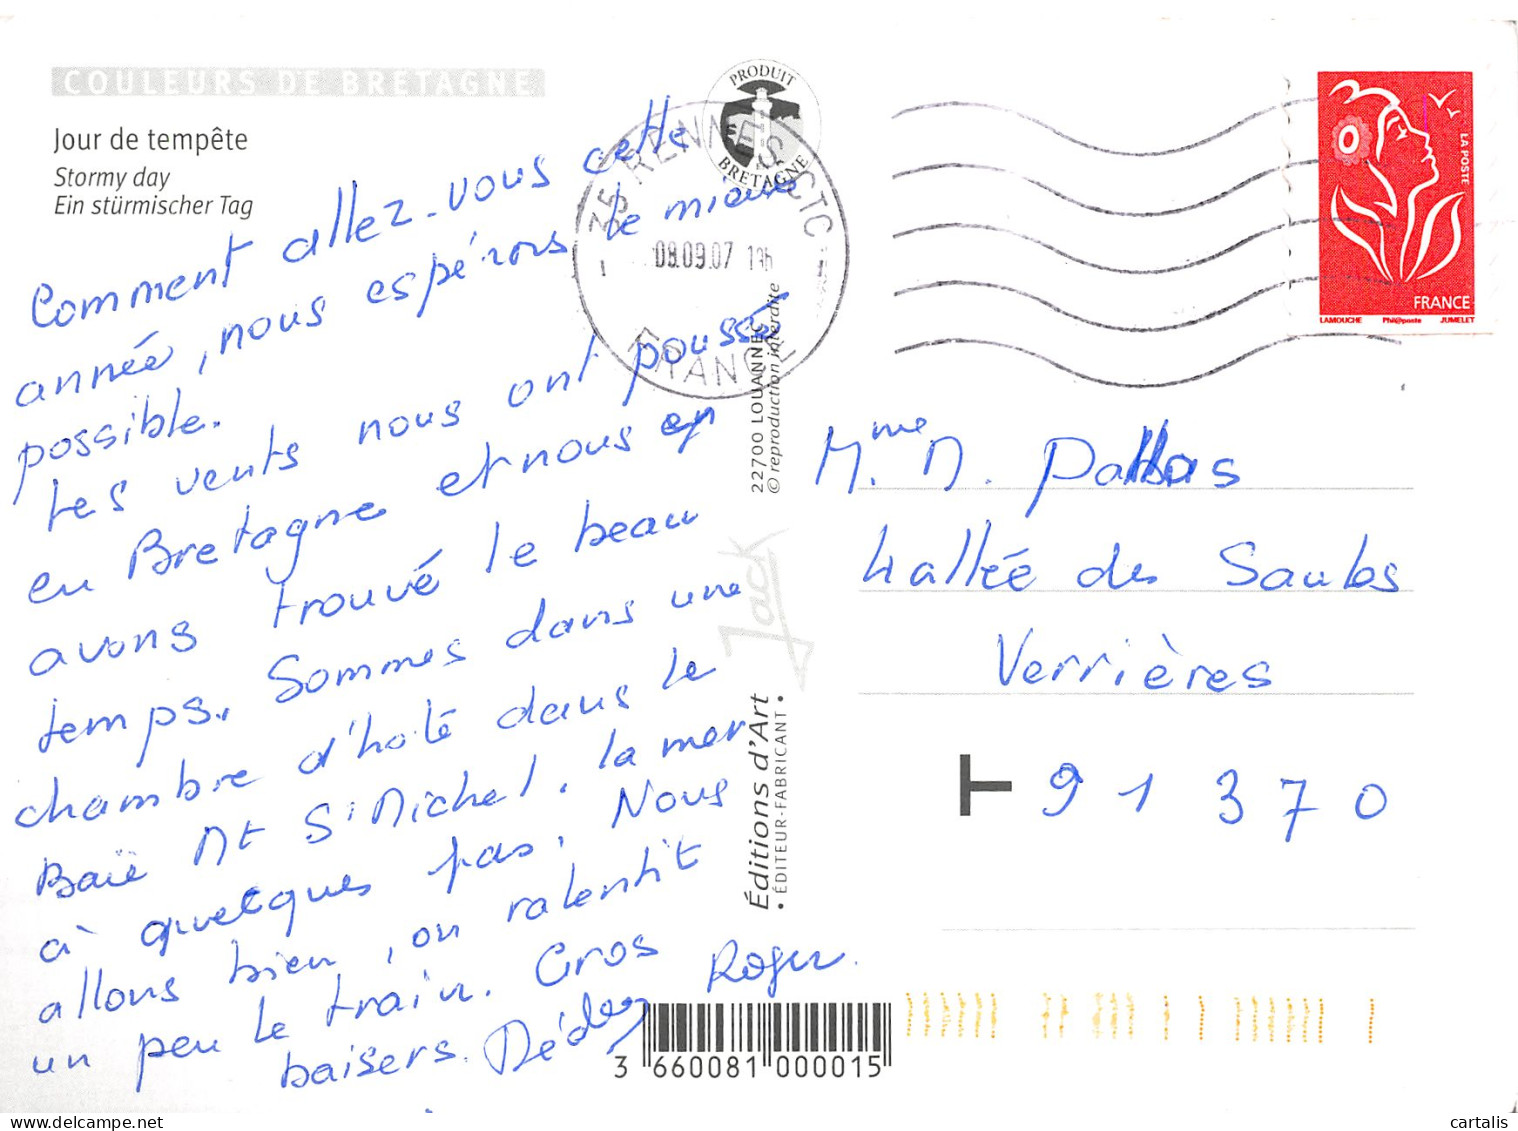 COULEURS DE BRETAGNE
Jour de tempête
Stormy day
Ein stürmischer Tag
Comment allez-vous cette
année, nous espérons le mieux
possible.
Les vents nous ont poussé
en Bretagne et nous en
avons trouvé le beau
temps. Sommes dans une
chambre d'hote dans le
Baie Mt St Michel. la mer
à quelques pas. Nous
allons bien, on ralentit
un peu le train. Gros
baisers. Roger.
PRODUIT
BRETAGNE
35 RENNES CTC
08.09.07
FRANCE
22700 LOUANNEC
© reproduction interdite
Jack
Éditions d'Art
• ÉDITEUR-FABRICANT •
3 660081 000015
LA POSTE
FRANCE
LAMOUCHE Phil@poste JUMELET
Mme. M.
des
Verrières
T 91 370
cartalis